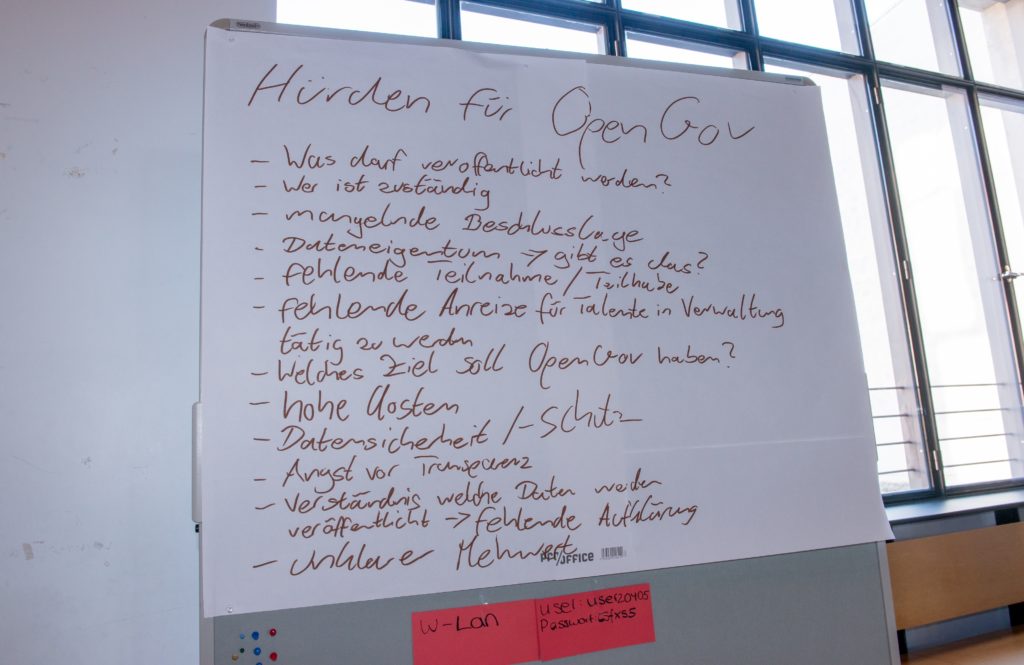 Hürden für OpenGov
- Was darf veröffentlicht werden?
- Wer ist zuständig
- mangelnde Beschlusslage
- Dateneigentum → gibt es das?
- fehlende Teilnahme / Teilhabe
- fehlende Anreize für Talente in Verwaltung
tätig zu werden
- Welches Ziel soll OpenGov haben?
- hohe Kosten
- Datensicherheit /-schutz
- Angst vor Transparenz
- Verständnis welche Daten werden
veröffentlicht → fehlende Aufklärung
- unklarer Mehrwert
OFFICE
W-Lan
User: user20405
Passwort: